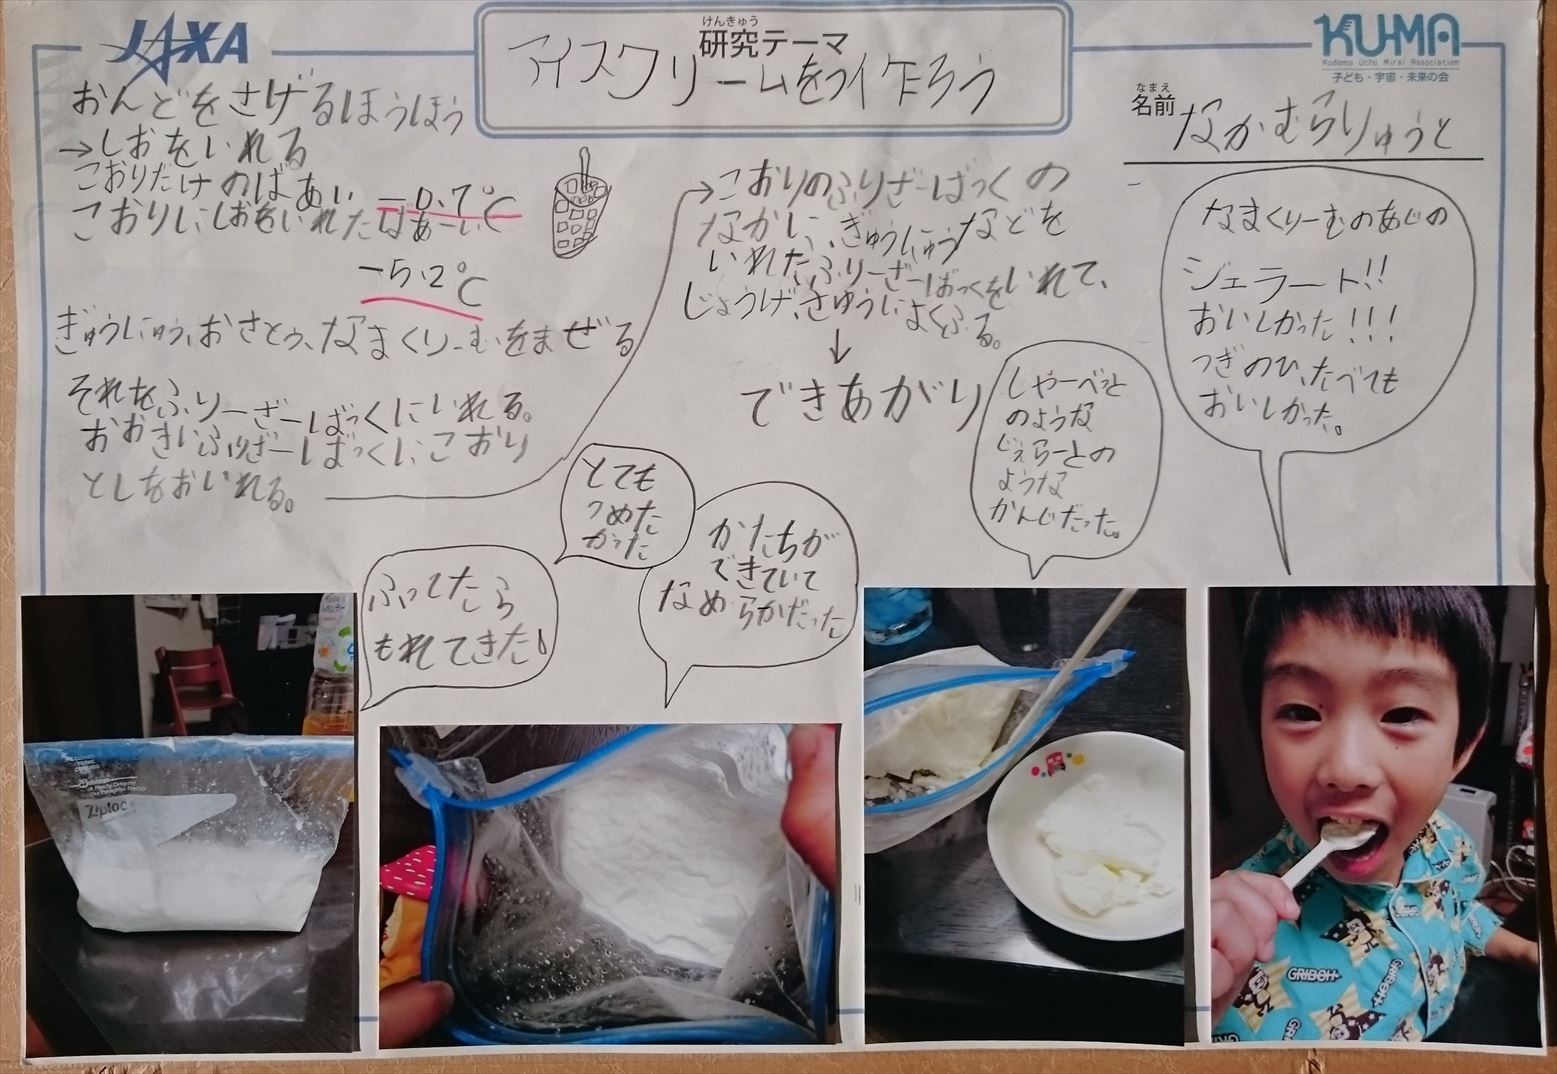 JAXA
けんきゅう
研究テーマ
アイスクリームを作ろう
KU-MA
Kodomo Uchu Mirai Association
子ども・宇宙・未来の会
なまえ
名前
なかむらりゅうと
おんどをさげるほうほう
→しおをいれる
こおりだけのばあい -0.7℃
こおりにしおをいれたばあーい
-5.2℃
ぎゅうにゅう、おさとう、なまくりーむをまぜる
それをふりーざーばっくにいれる。
おおきいふりざーばっくに、こおり
としをおいれる。
→こおりのふりざーばっくの
なかに、ぎゅうにゅうなどを
いれたふりーざーばっくをいれて、
じょうげ、さゆうによくふる。
↓
できあがり
ふってたら
もれてきた!
とても
つめた
かった
かたちが
できていて
なめらかだった
しゃーべっと
のような
じぇらーとの
ような
かんじだった。
なまくりーむのあじの
ジェラート!!
おいしかった!!!
つぎのひ、たべても
おいしかった。
Ziploc
GRIBOH